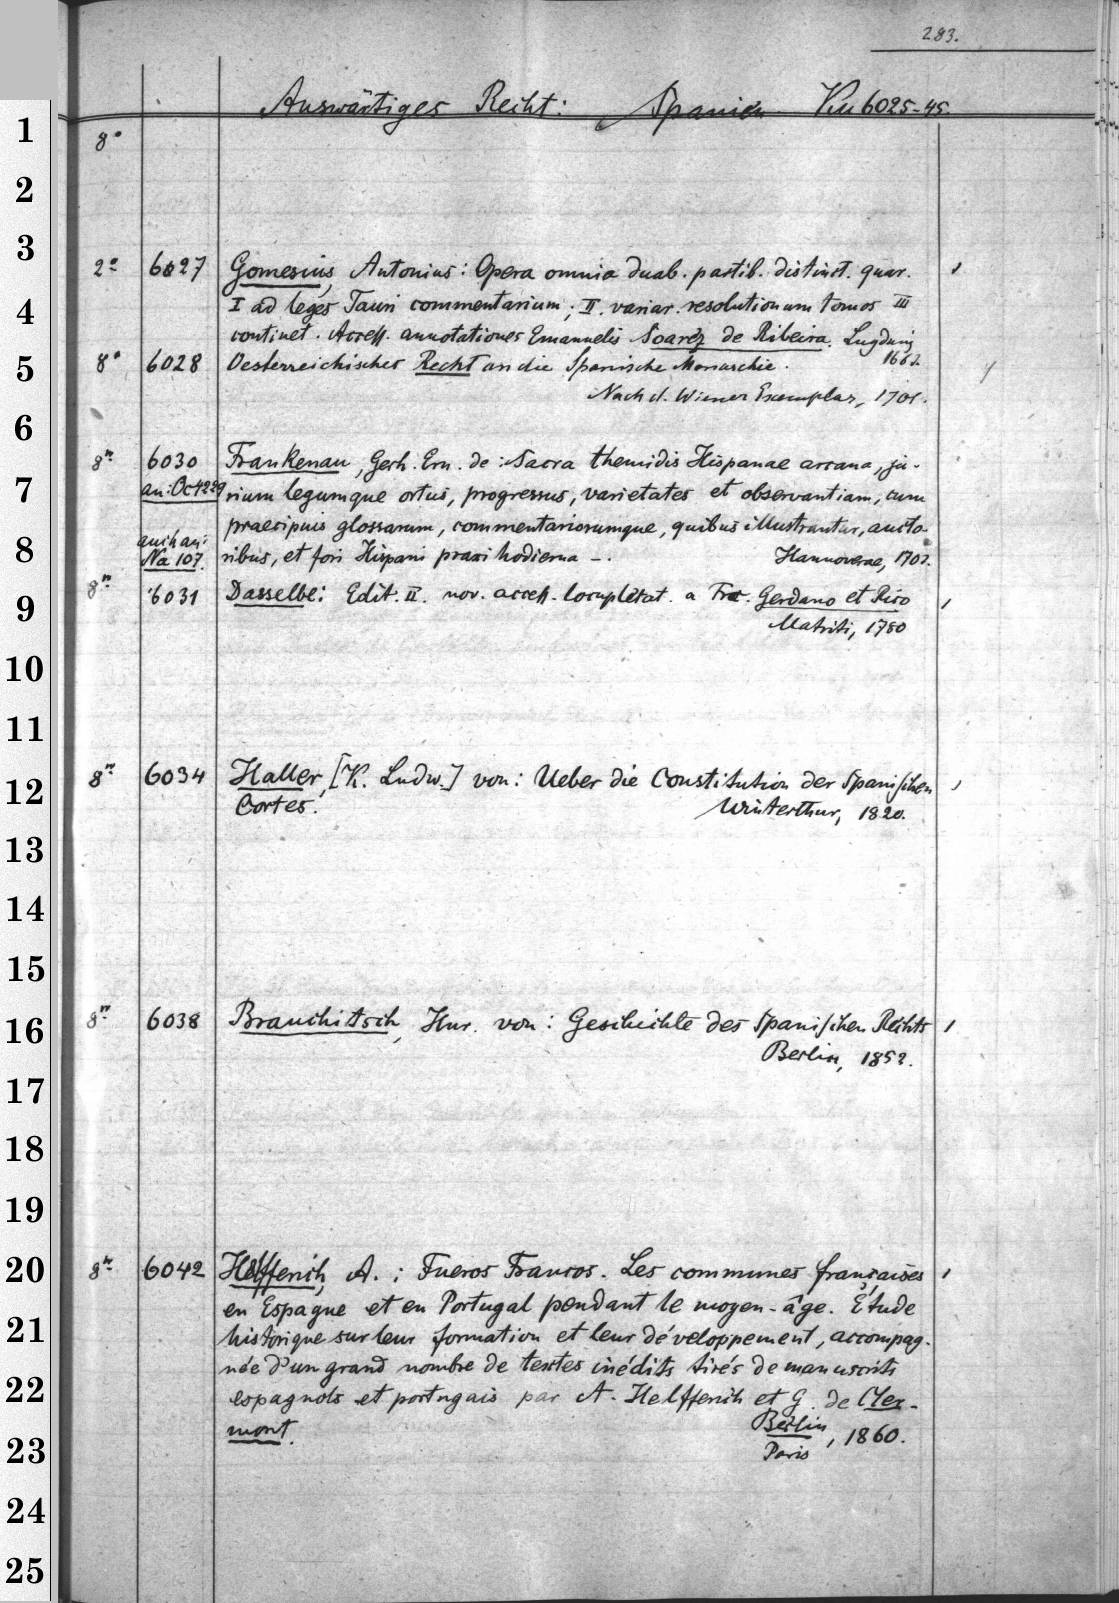 283.
Auswärtiges Recht: Spanien Km 6025-45.
1
8°
2
3
2° 6027 Gomesius, Antonius: Opera omnia duab. partib. distinct. quar.
4 I ad leges Tauri commentarium; II. variar. resolutionum tomos III
continet. Access. annotationes Emanuelis Soarez de Ribeira. Lugduni
1662.
5 8° 6028 Oesterreichisches Recht an die Spanische Monarchie.
Nach d. Wiener Exemplar, 1701.
6
8° 6030 Frankenau, Gerh. Ern. de: Sacra themidis Hispanae arcana, ju-
7 an: Oc4229 rium legumque ortus, progressus, varietates et observantiam, cum
praecipuis glossarum, commentariorumque, quibus illustrantur, aucto-
8 auch an: Na 107. ribus, et fori Hispani praxi hodierna –. Hannoverae, 1702.
9 8° 6031 Dasselbe: Edit. II. nov. access. locupletat. a Fr. Cerdano et Rico
Matriti, 1780
10
11
12 8° 6034 Haller, [K. Ludw.] von: Ueber die Constitution der Spanischen
Cortes. Winterthur, 1820.
13
14
15
16 8° 6038 Brauchitsch, Hnr. von: Geschichte des Spanischen Rechts
Berlin, 1852.
17
18
19
20 8° 6042 Helfferich, A.: Fueros Francos. Les communes françaises
en Espagne et en Portugal pendant le moyen-âge. Étude
21 historique sur leur formation et leur développement, accompag-
née d'un grand nombre de textes inédits tirés de manuscrits
22 espagnols et portugais par A. Helfferich et G. de Cler-
mont. Berlin, 1860.
23 Paris
24
25